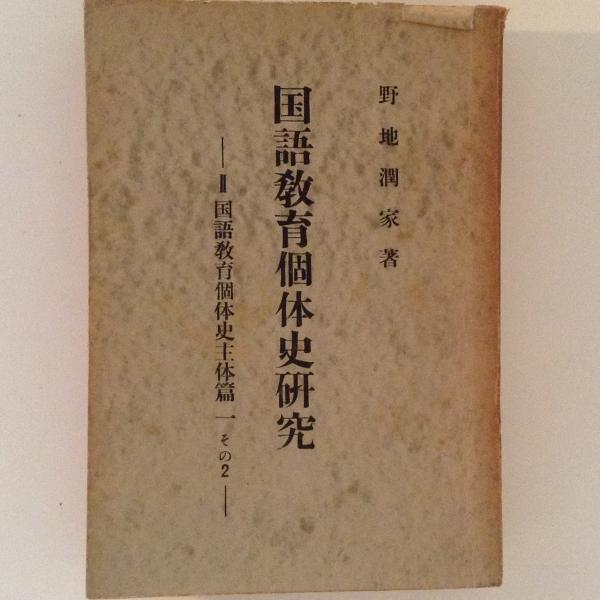 野地潤家著
国語教育個体史研究
―Ⅱ国語教育個体史主体篇一その2―